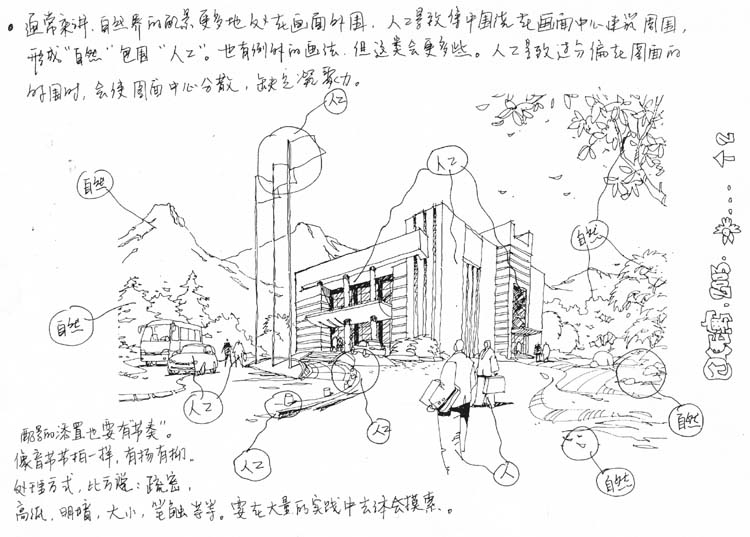 通常来讲,自然界的配景更多地处在画面外围,人工景致集中围绕在画面中心建筑周围,
形成"自然"包围"人工"。也有例外的画法,但这类会更多些。人工景致过分偏在图面的
外围时,会使图面中心分散,缺乏凝聚力。
人工
人工
自然
自然
自然
人工
人工
人工
人
自然
自然
配景的添置也要有"节奏"。
像音节节拍一样,有扬有抑。
处理方式,比方说:疏密,
高低,明暗,大小,笔触等等。要在大量的实践中去体会摸索。
2013